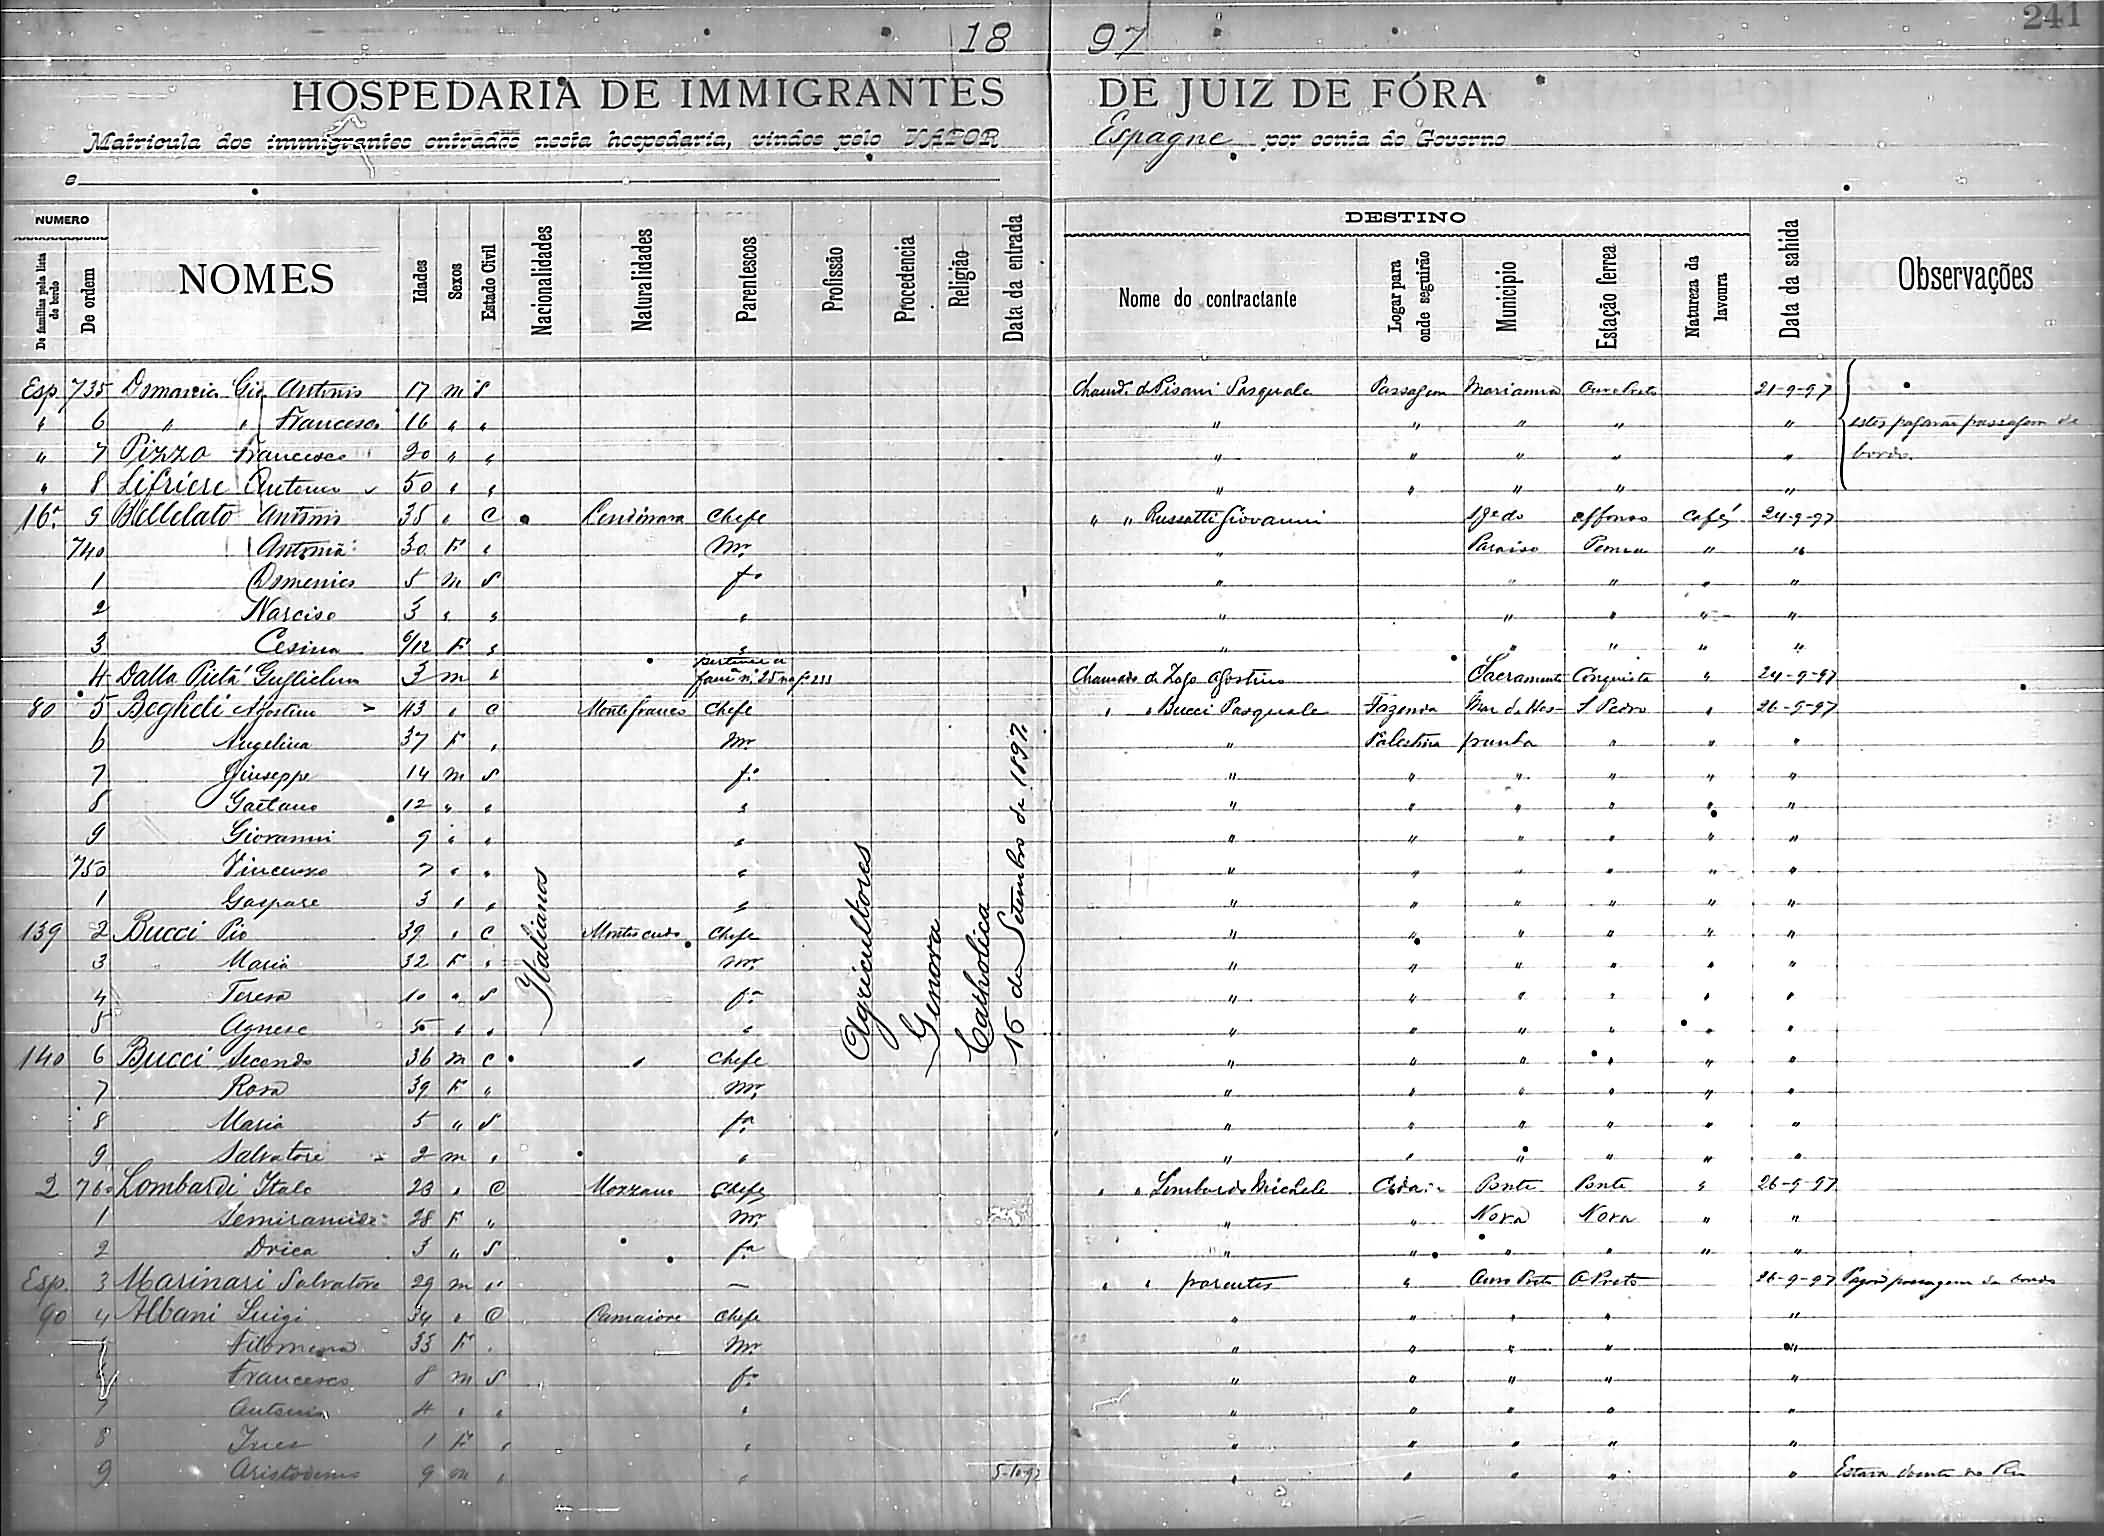 241
18 97
HOSPEDARIA DE IMMIGRANTES DE JUIZ DE FÓRA
Matricula dos immigrantes entrados nesta hospedaria, vindos pelo VAPOR Espagne por conta do Governo
e
NUMERO DESTINO
De familias pela lista de bordo De ordem NOMES Idades Sexos Estado Civil Nacionalidades Naturalidades Parentescos Profissão Procedencia Religião Data da entrada Nome do contractante Logar para onde seguirão Municipio Estação ferrea Natureza da lavoura Data da sahida Observações
Italianos
Agricultores
Genova
Catholica
15 de Setembro de 1897
Esp. 735 Gio Antonio 17 m S Chamdo. de Pisani Pasquale Passagem Marianna Ouro Preto 21-9-97
" 6 " " Francesco 16 " " " " " " " estes pagaram passagem de
" 7 Pizzo Francesco 20 " " " " " " " bordo.
" 8 Antonio 50 " " " " " " "
16 9 Bellelato Antonio 35 " C Lendinara Chefe " " Russatti Giovanni Affonso Café 24-9-97
740 Antonia 30 F " Mr. " Paraiso Penna " "
1 Domenico 5 m S fo " " " " "
2 Narciso 3 " " " " " " " "
3 Cesira 6/12 F " " " " " " "
4 Dalla Pietà Guglielmo 3 m " pertence a famª nº 25 na f. 233 Chamado de Zago Agostino Sacramento Conquista " 24-9-97
80 5 Begheli Agostino 43 " C Montefranco Chefe " " Bucci Pasquale Fazenda Mar de Hes- S Pedro " 26-9-97
6 Angelina 37 F " Mr " Palestina panha " " "
7 Giuseppe 14 m S fo " " " " " "
8 Gaetano 12 " " " " " " " " "
9 Giovanni 9 " " " " " " " " "
750 Vincenzo 7 " " " " " " " " "
1 Gaspare 3 " " " " " " " " "
139 2 Bucci Pio 39 " C Montescudo Chefe " " " " " "
3 Maria 32 F " Mr. " " " " " "
4 Teresa 10 " S fa " " " " " "
5 Agnese 5 " " " " " " " " "
140 6 Bucci Secondo 36 m C " Chefe " " " " " "
7 Rosa 39 F " Mr. " " " " " "
8 Maria 5 " S fa " " " " " "
9 Salvatore 2 m " " " " " " " "
2 760 Lombardi Italo 23 " C Mozzano Chefe " " Lombardo Michele Ponte Ponte " 26-9-97
1 Semiramide 28 F " Mr. " " Nova Nova " "
2 Drica 3 " S fa " " " " " "
Esp. 3 Marinari Salvatore 29 m " — " " parentes " Ouro Preto O Preto 26-9-97 Pagou passagem de bordo
90 4 Albani Luigi 34 " C Camaiore Chefe " " " " "
Filomena 33 F " Mr. " " " " "
Francesco 8 m S fo " " " " "
7 Antonio 4 " " " " " " " "
8 Ines 1 F " " " " " " "
9 Aristodemo 9 m " " 5-10-97 " " " " " Estava doente no Rio